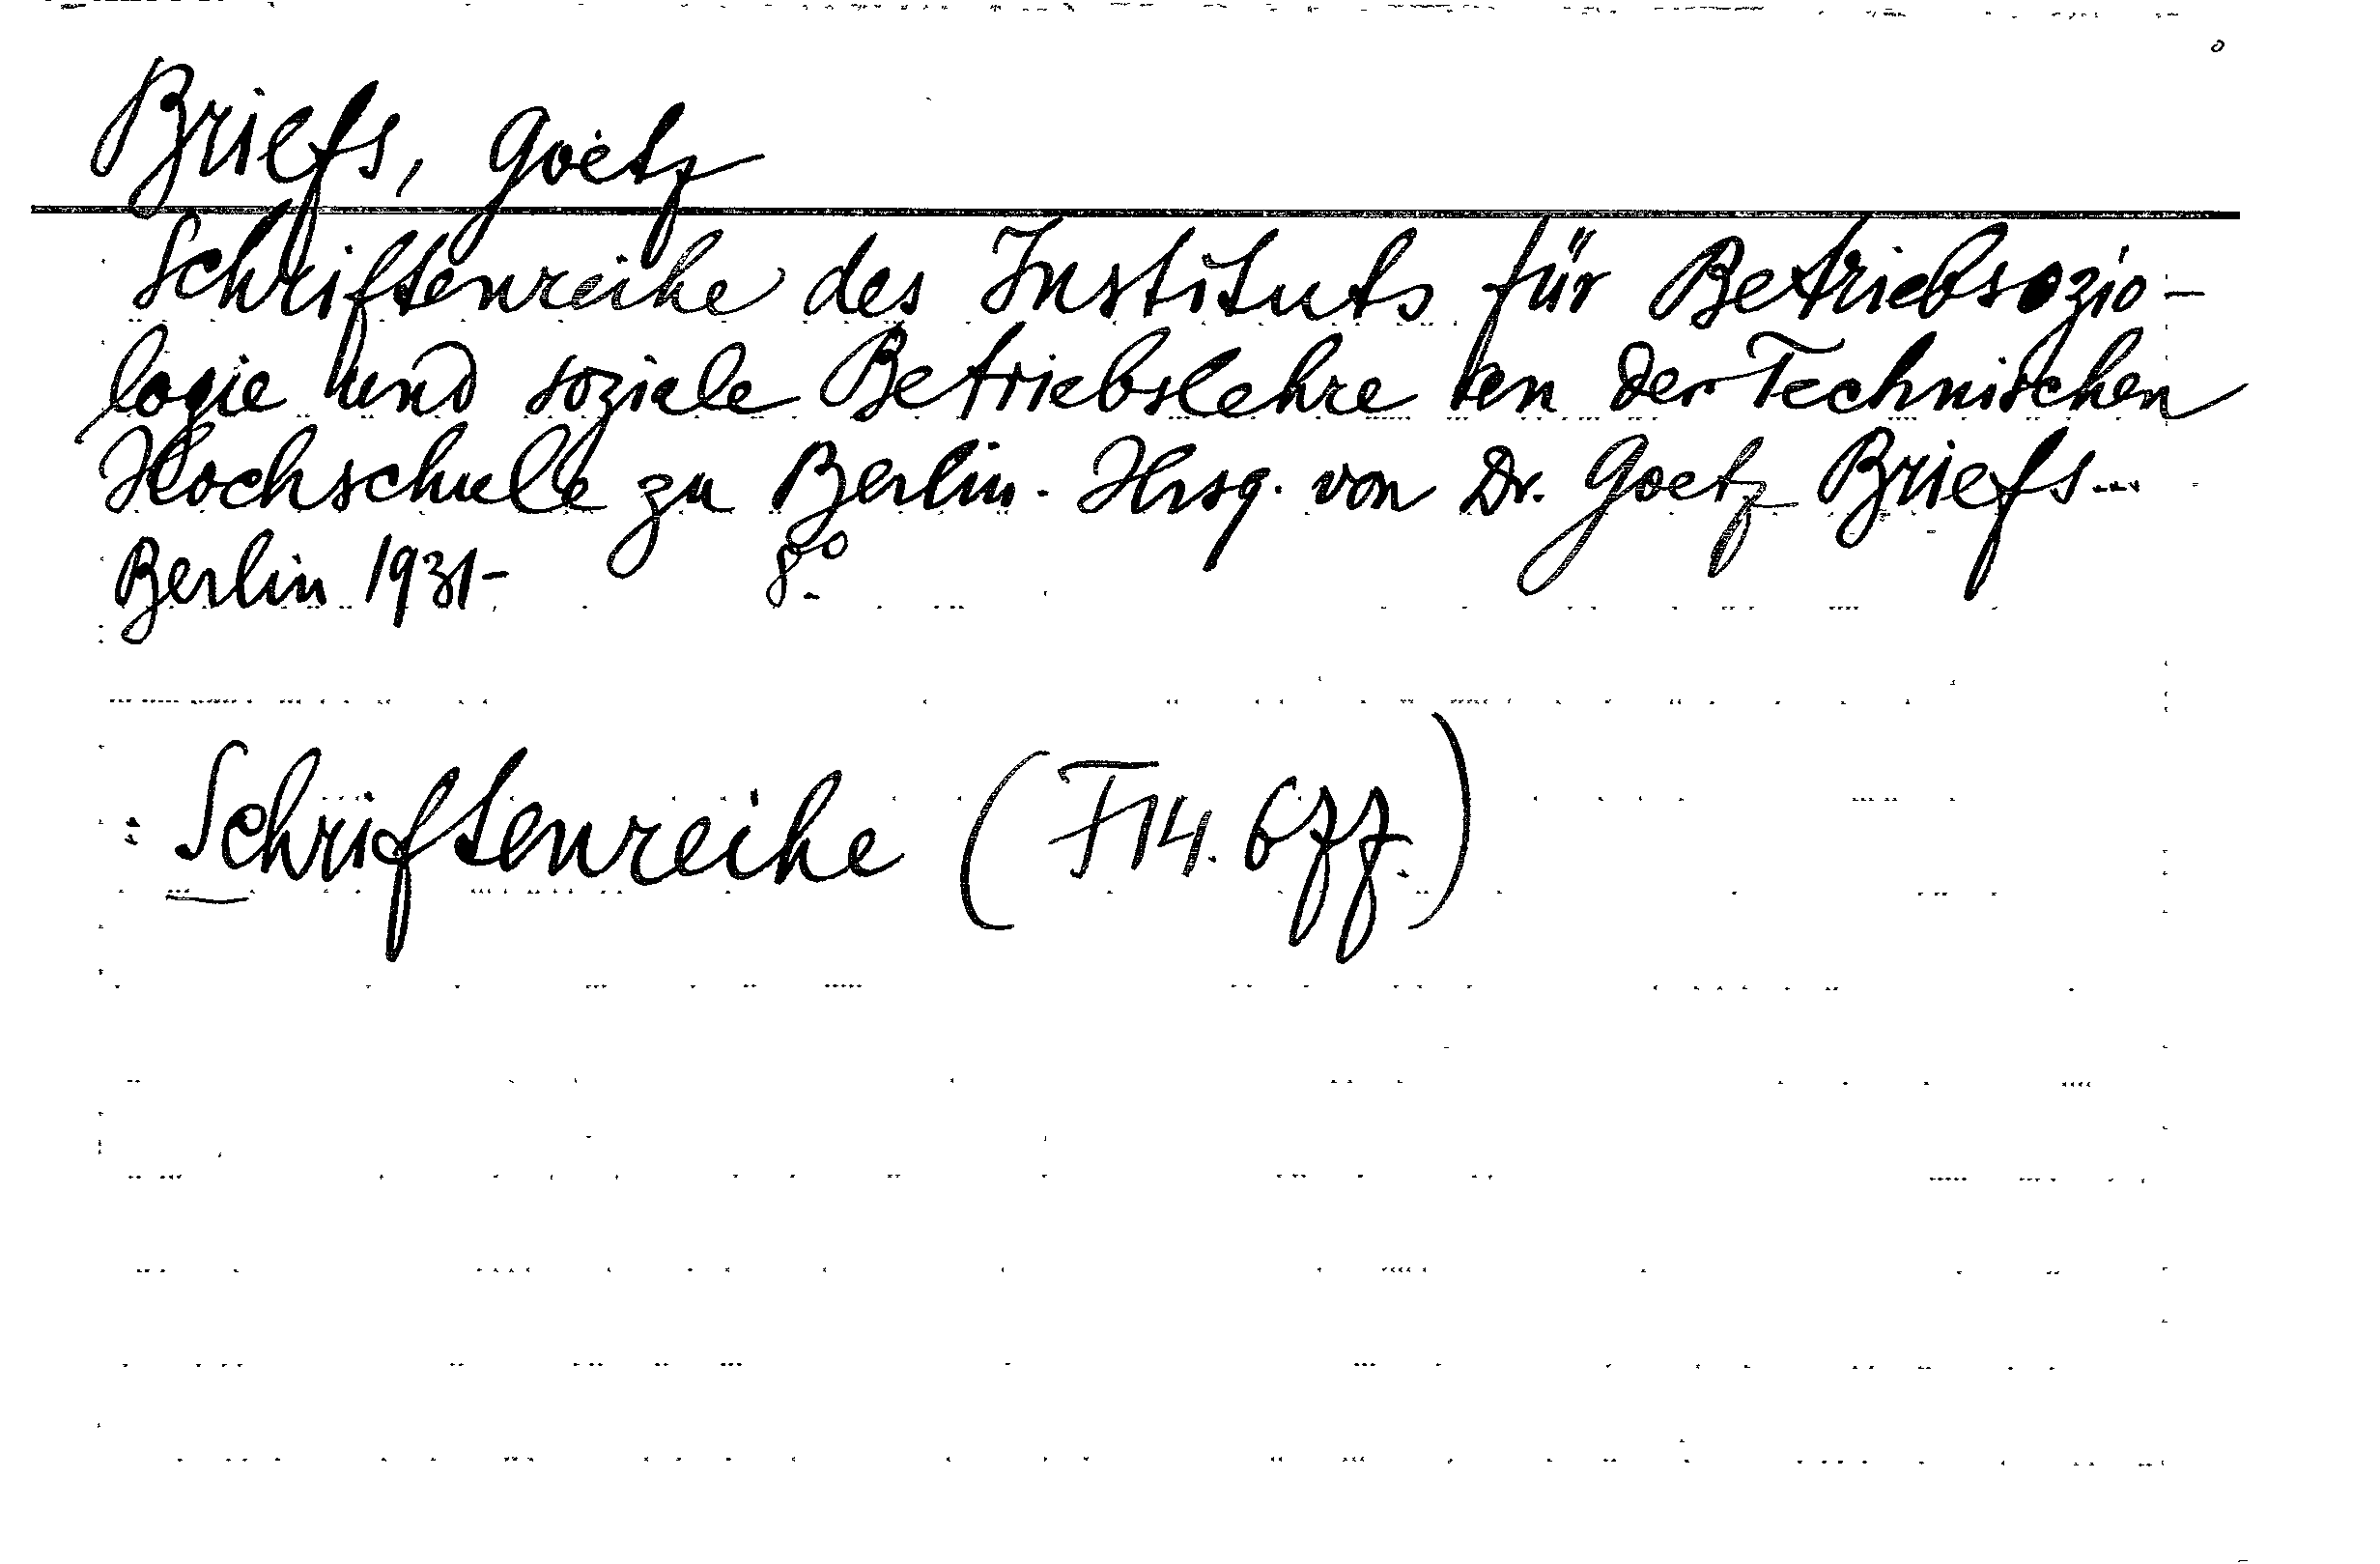 Briefs, Goetz
Schriftenreihe des Instituts für Betriebsozio-
logie und soziale Betriebslehre an der Technischen
Hochschule zu Berlin. Hrsg. von Dr. Goetz Briefs...
Berlin 1931- 8°
: Schriftenreihe (F14. 6ff.)